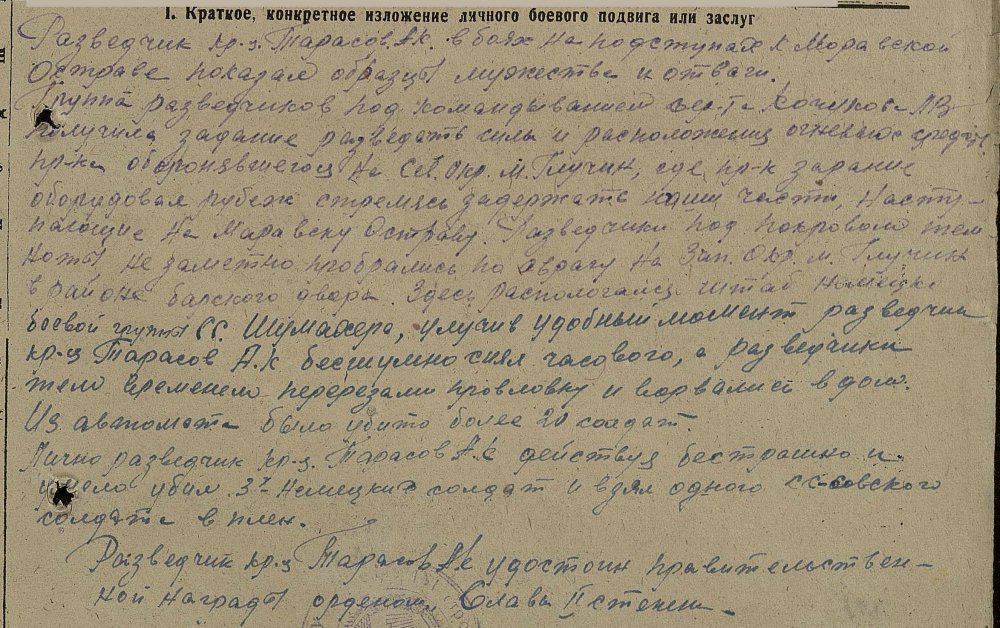 I. Краткое, конкретное изложение личного боевого подвига или заслуг
Разведчик кр-ц. Тарасов А.К. в боях на подступах к Моравской
Остраве показал образцы мужества и отваги.
Группа разведчиков под командыванием сер-та
получила задание разведать силы и расположения огневых средств
пр-ка оборонявшегося на Сев. Окр. м. Глучин, где пр-к зарание
оборудовал рубеж стремясь задержать наши части, насту-
пающие на Маравску Остраву. Разведчики под покровом тем
ноты не заметно пробрались по оврагу на Зап. Окр. м. Глучин
в районе барского двора. Здесь распологался штаб немецкой
боевой группы СС. Шумахера, улучив удобный момент разведчик
кр-ц Тарасов А.К бесшумно снял часового, а разведчики
тем временем перерезали провловку и ворвались в дом.
Из автомата было убито более 20 солдат.
Лично разведчик кр-ц. Тарасов А.К действуя бестрашно и
умело убил 3х немецких солдат и взял одного сс-совского
солдата в плен.
Разведчик кр-ц Тарасов А.К удостоин правительствен-
ной награды орденом Славы II степени